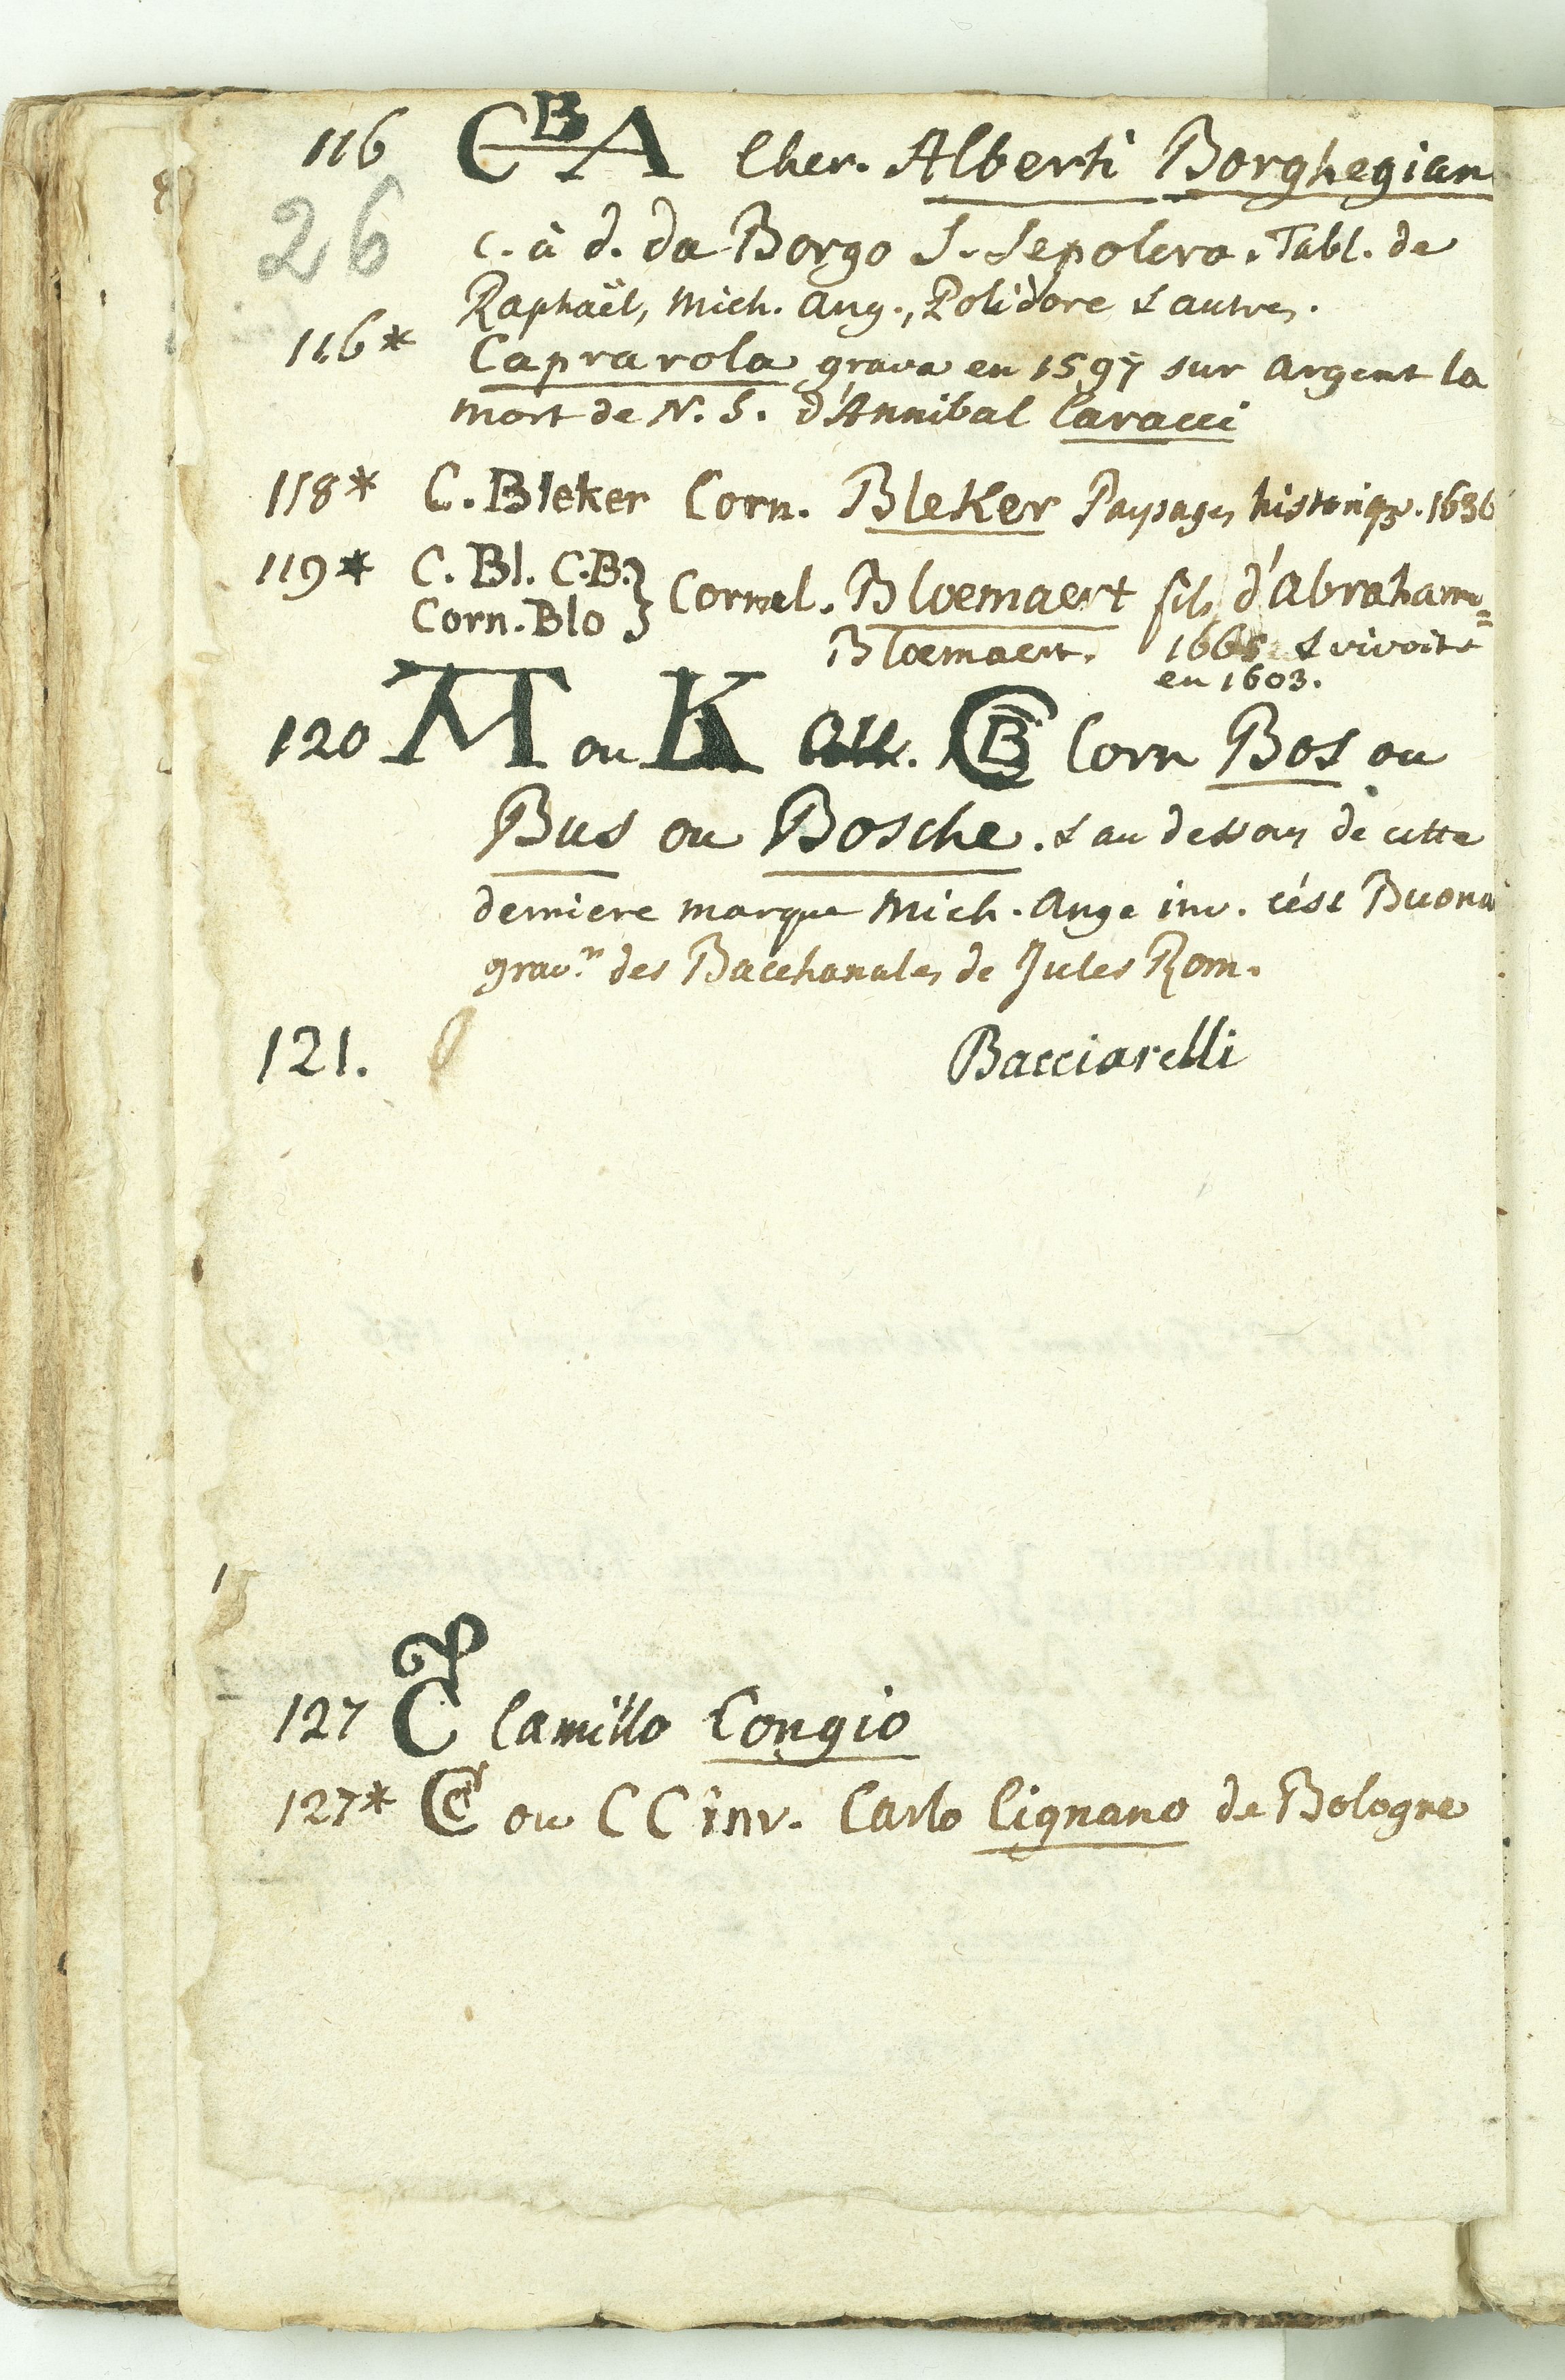 116 CBA Cher. Alberti Borghegian
26
c. à d. da Borgo S. Sepolcro. Tabl. de
Raphaël, Mich. Ang., Polidore & autres.
116* Caprarola grava en 1597 sur Argent la
mort de N. S. d'Annibal Caracci
118* C. Bleker Corn. Bleker Paysages historiqs. 1636
119* C. Bl. C.B. Cornel. Bloemaert fils d'Abraham
Corn. Blo
Bloemaert. & vivoit
en 1603.
120 ou CB Corn Bos ou
Bus ou Bosche. & au dessous de cette
derniere marque Mich. Ange inv. c'est Buona
grav.n des Bacchanales de Jules Rom.
121. Bacciarelli
127 C Camillo Congio
127* CC ou CC inv. Carlo Cignano de Bologne